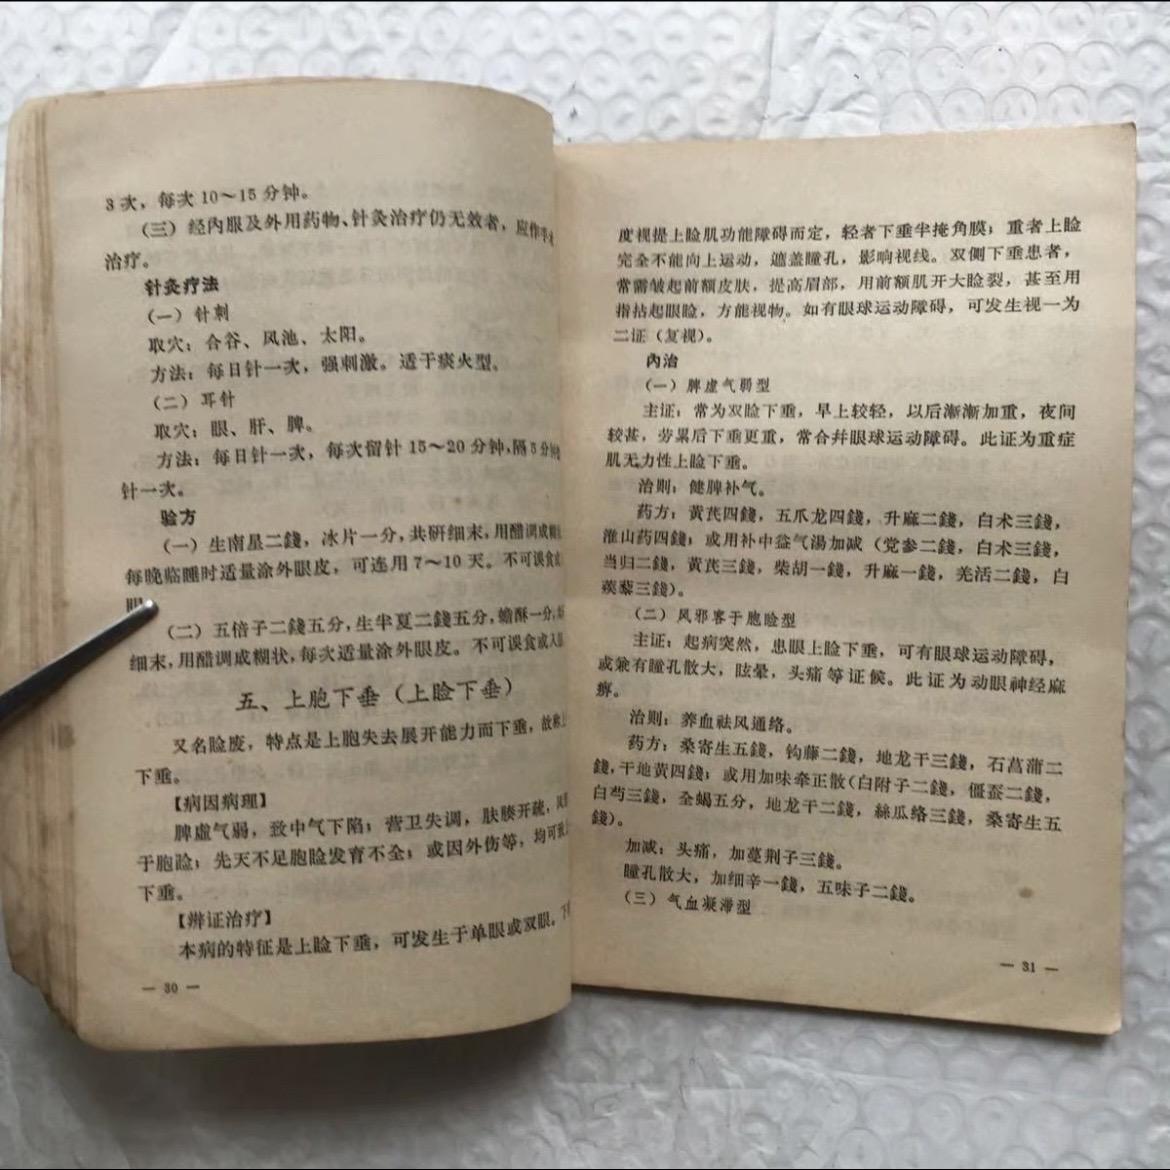 3次，每次10～15分钟。
（三）经内服及外用药物、针灸治疗仍无效者，应作手术
治疗。
针灸疗法
（一）针刺
取穴：合谷、风池、太阳。
方法：每日针一次，强刺激。适于痰火型。
（二）耳针
取穴：眼、肝、脾。
方法：每日针一次，每次留针15～20分钟，隔5分钟
针一次。
验方
（一）生南星二錢，冰片一分，共研细末，用醋调成糊
每晚临睡时适量涂外眼皮，可连用7～10天。不可误食或
眼
（二）五倍子二錢五分，生半夏二錢五分，蟾酥一分，
细末，用醋调成糊状，每次适量涂外眼皮。不可误食或入
五、上胞下垂（上睑下垂）
又名睑废，特点是上胞失去展开能力而下垂，故称
下垂。
【病因病理】
脾虚气弱，致中气下陷；营卫失调，肤腠开疏，风
于胞睑；先天不足胞睑发育不全；或因外伤等，均可致
下垂。
【辨证治疗】
本病的特征是上睑下垂，可发生于单眼或双眼。下
— 30 —
度视提上睑肌功能障碍而定，轻者下垂半掩角膜；重者上睑
完全不能向上运动，遮盖瞳孔，影响视线。双侧下垂患者，
常需皱起前额皮肤，提高眉部，用前额肌开大睑裂，甚至用
指拈起眼睑，方能视物。如有眼球运动障碍，可发生视一为
二证（复视）。
內治
（一）脾虚气弱型
主证：常为双睑下垂，早上较轻，以后渐渐加重，夜间
较甚，劳累后下垂更重，常合并眼球运动障碍。此证为重症
肌无力性上睑下垂。
治则：健脾补气。
药方：黄芪四錢，五爪龙四錢，升麻二錢，白术三錢，
淮山药四錢；或用补中益气湯加减（党参二錢，白术三錢，
当归二錢，黄芪三錢，柴胡一錢，升麻一錢，羌活二錢，白
蒺藜三錢）。
（二）风邪客于胞睑型
主证：起病突然，患眼上睑下垂，可有眼球运动障碍，
或兼有瞳孔散大，眩晕，头痛等证候。此证为动眼神经麻
痹。
治则：养血祛风通络。
药方：桑寄生五錢，钩藤二錢，地龙干三錢，石菖蒲二
錢，干地黄四錢；或用加味牵正散（白附子二錢，僵蚕二錢，
白芍三錢，全蝎五分，地龙干二錢，絲瓜络三錢，桑寄生五
錢）。
加减：头痛，加蔓荆子三錢。
瞳孔散大，加细辛一錢，五味子二錢。
（三）气血凝滞型
— 31 —